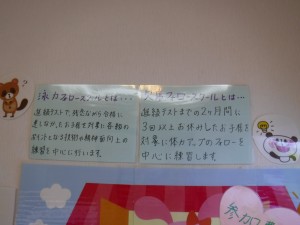 泳力フォロースクールとは…
進級テストで、残念ながら合格に
達しなかったお子様を対象に各級の
ポイントとなる技術や精神面向上の
練習を中心に行います
フォロースクールとは…
進級テストまでの2ヶ月間に
3回以上お休みしたお子様を
対象に体力アップのフォローを
中心に練習します
参加